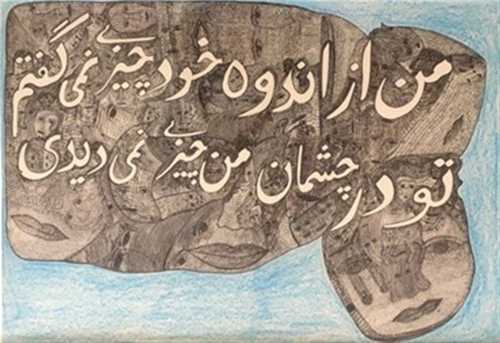 من از اندوه خود چیزی نمی گفتم
تو در چشمان من چیزی نمی دیدی